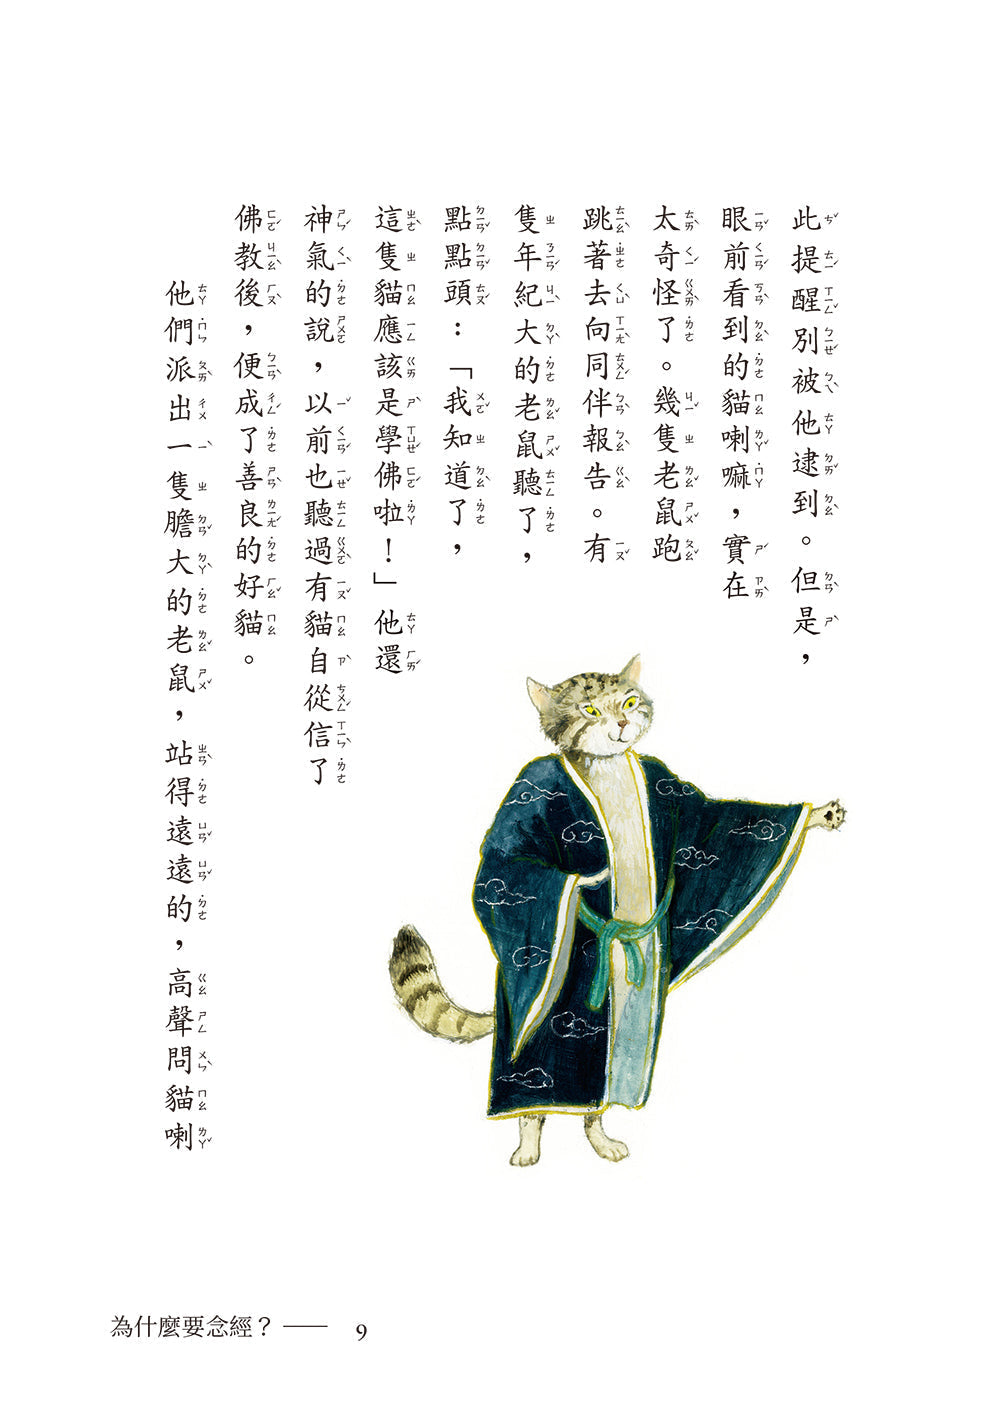 此提醒別被他逮到。但是，
眼前看到的貓喇嘛，實在
太奇怪了。幾隻老鼠跑
跳著去向同伴報告。有
隻年紀大的老鼠聽了，
點點頭：「我知道了，
這隻貓應該是學佛啦！」他還
神氣的說，以前也聽過有貓自從信了
佛教後，便成了善良的好貓。
他們派出一隻膽大的老鼠，站得遠遠的，高聲問貓喇
為什麼要念經？—— 9